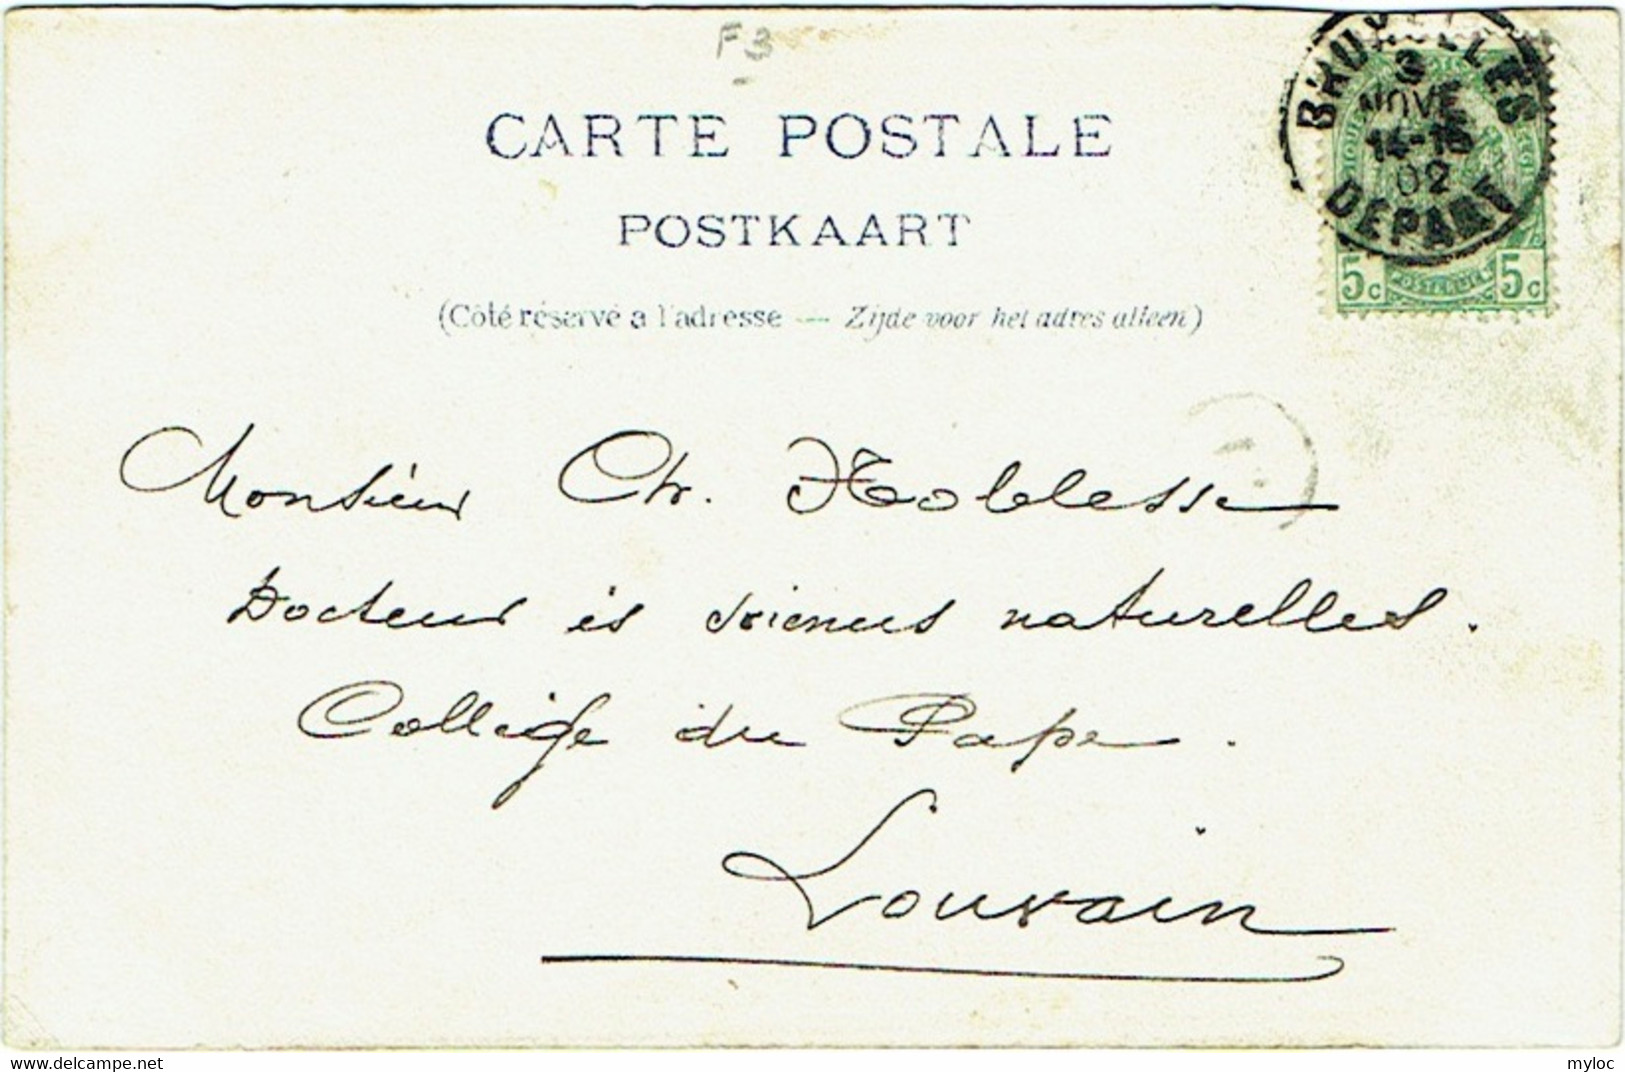 F3
CARTE POSTALE
POSTKAART
(Côté réservé a l'adresse — Zijde voor het adres alleen)
BRUXELLES
3
NOVE
14-15
02
DEPART
5c 5c
Monsieur Ch. Noblesse
Docteur ès sciences naturelles.
Collège du Pape.
Louvain
delcampe.net
myloc